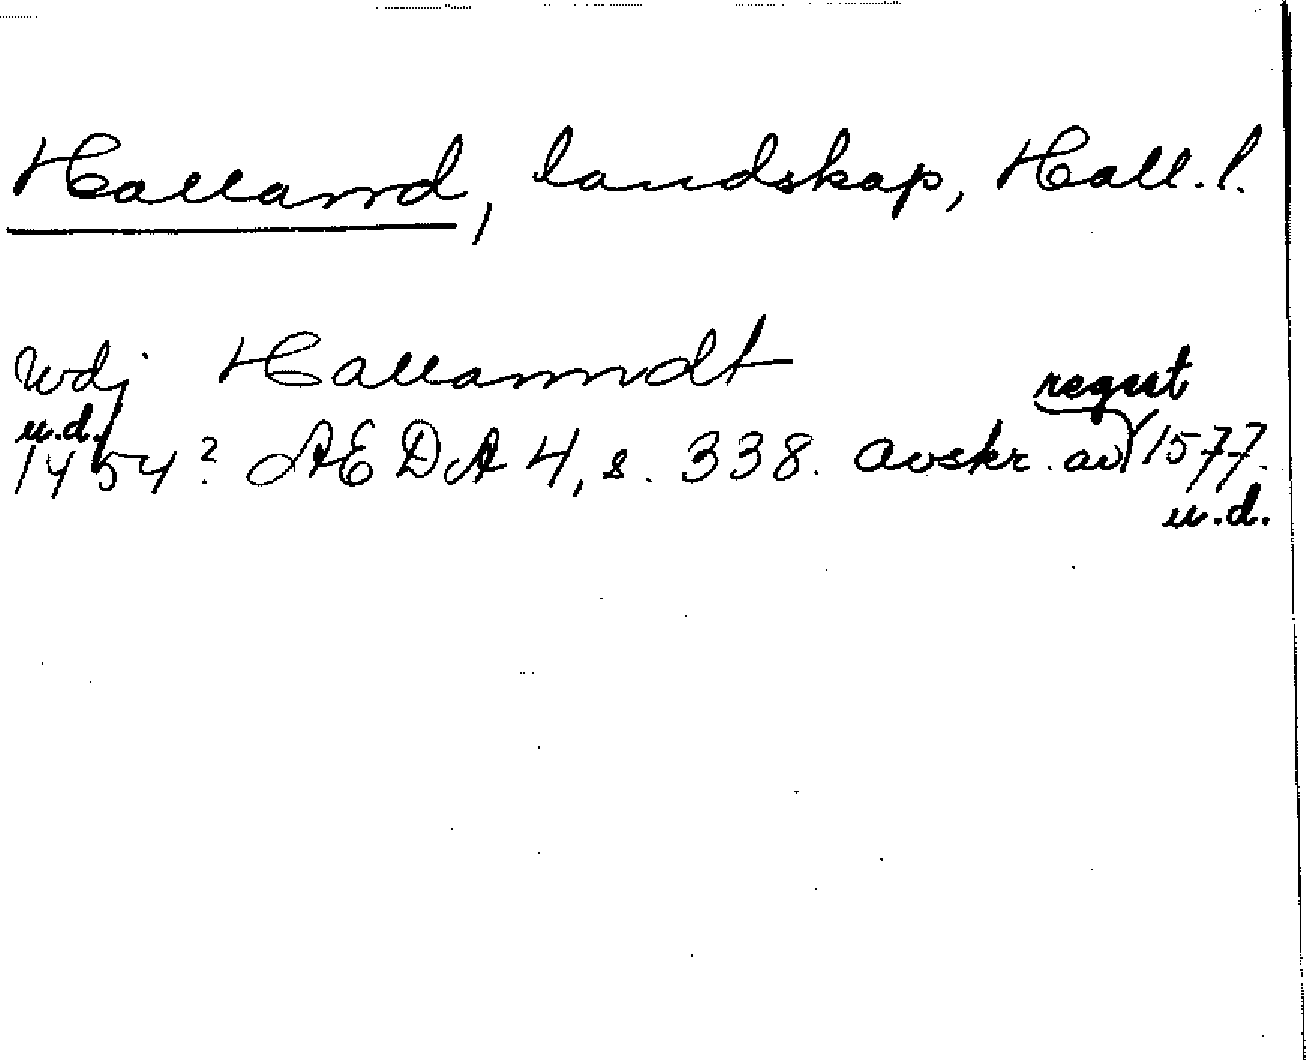 Halland, landskap, Hall. l.
wdj Hallanndt
regest
u.d.
1454? ÆDA 4, s. 338. Avskr. av 1577.
u.d.